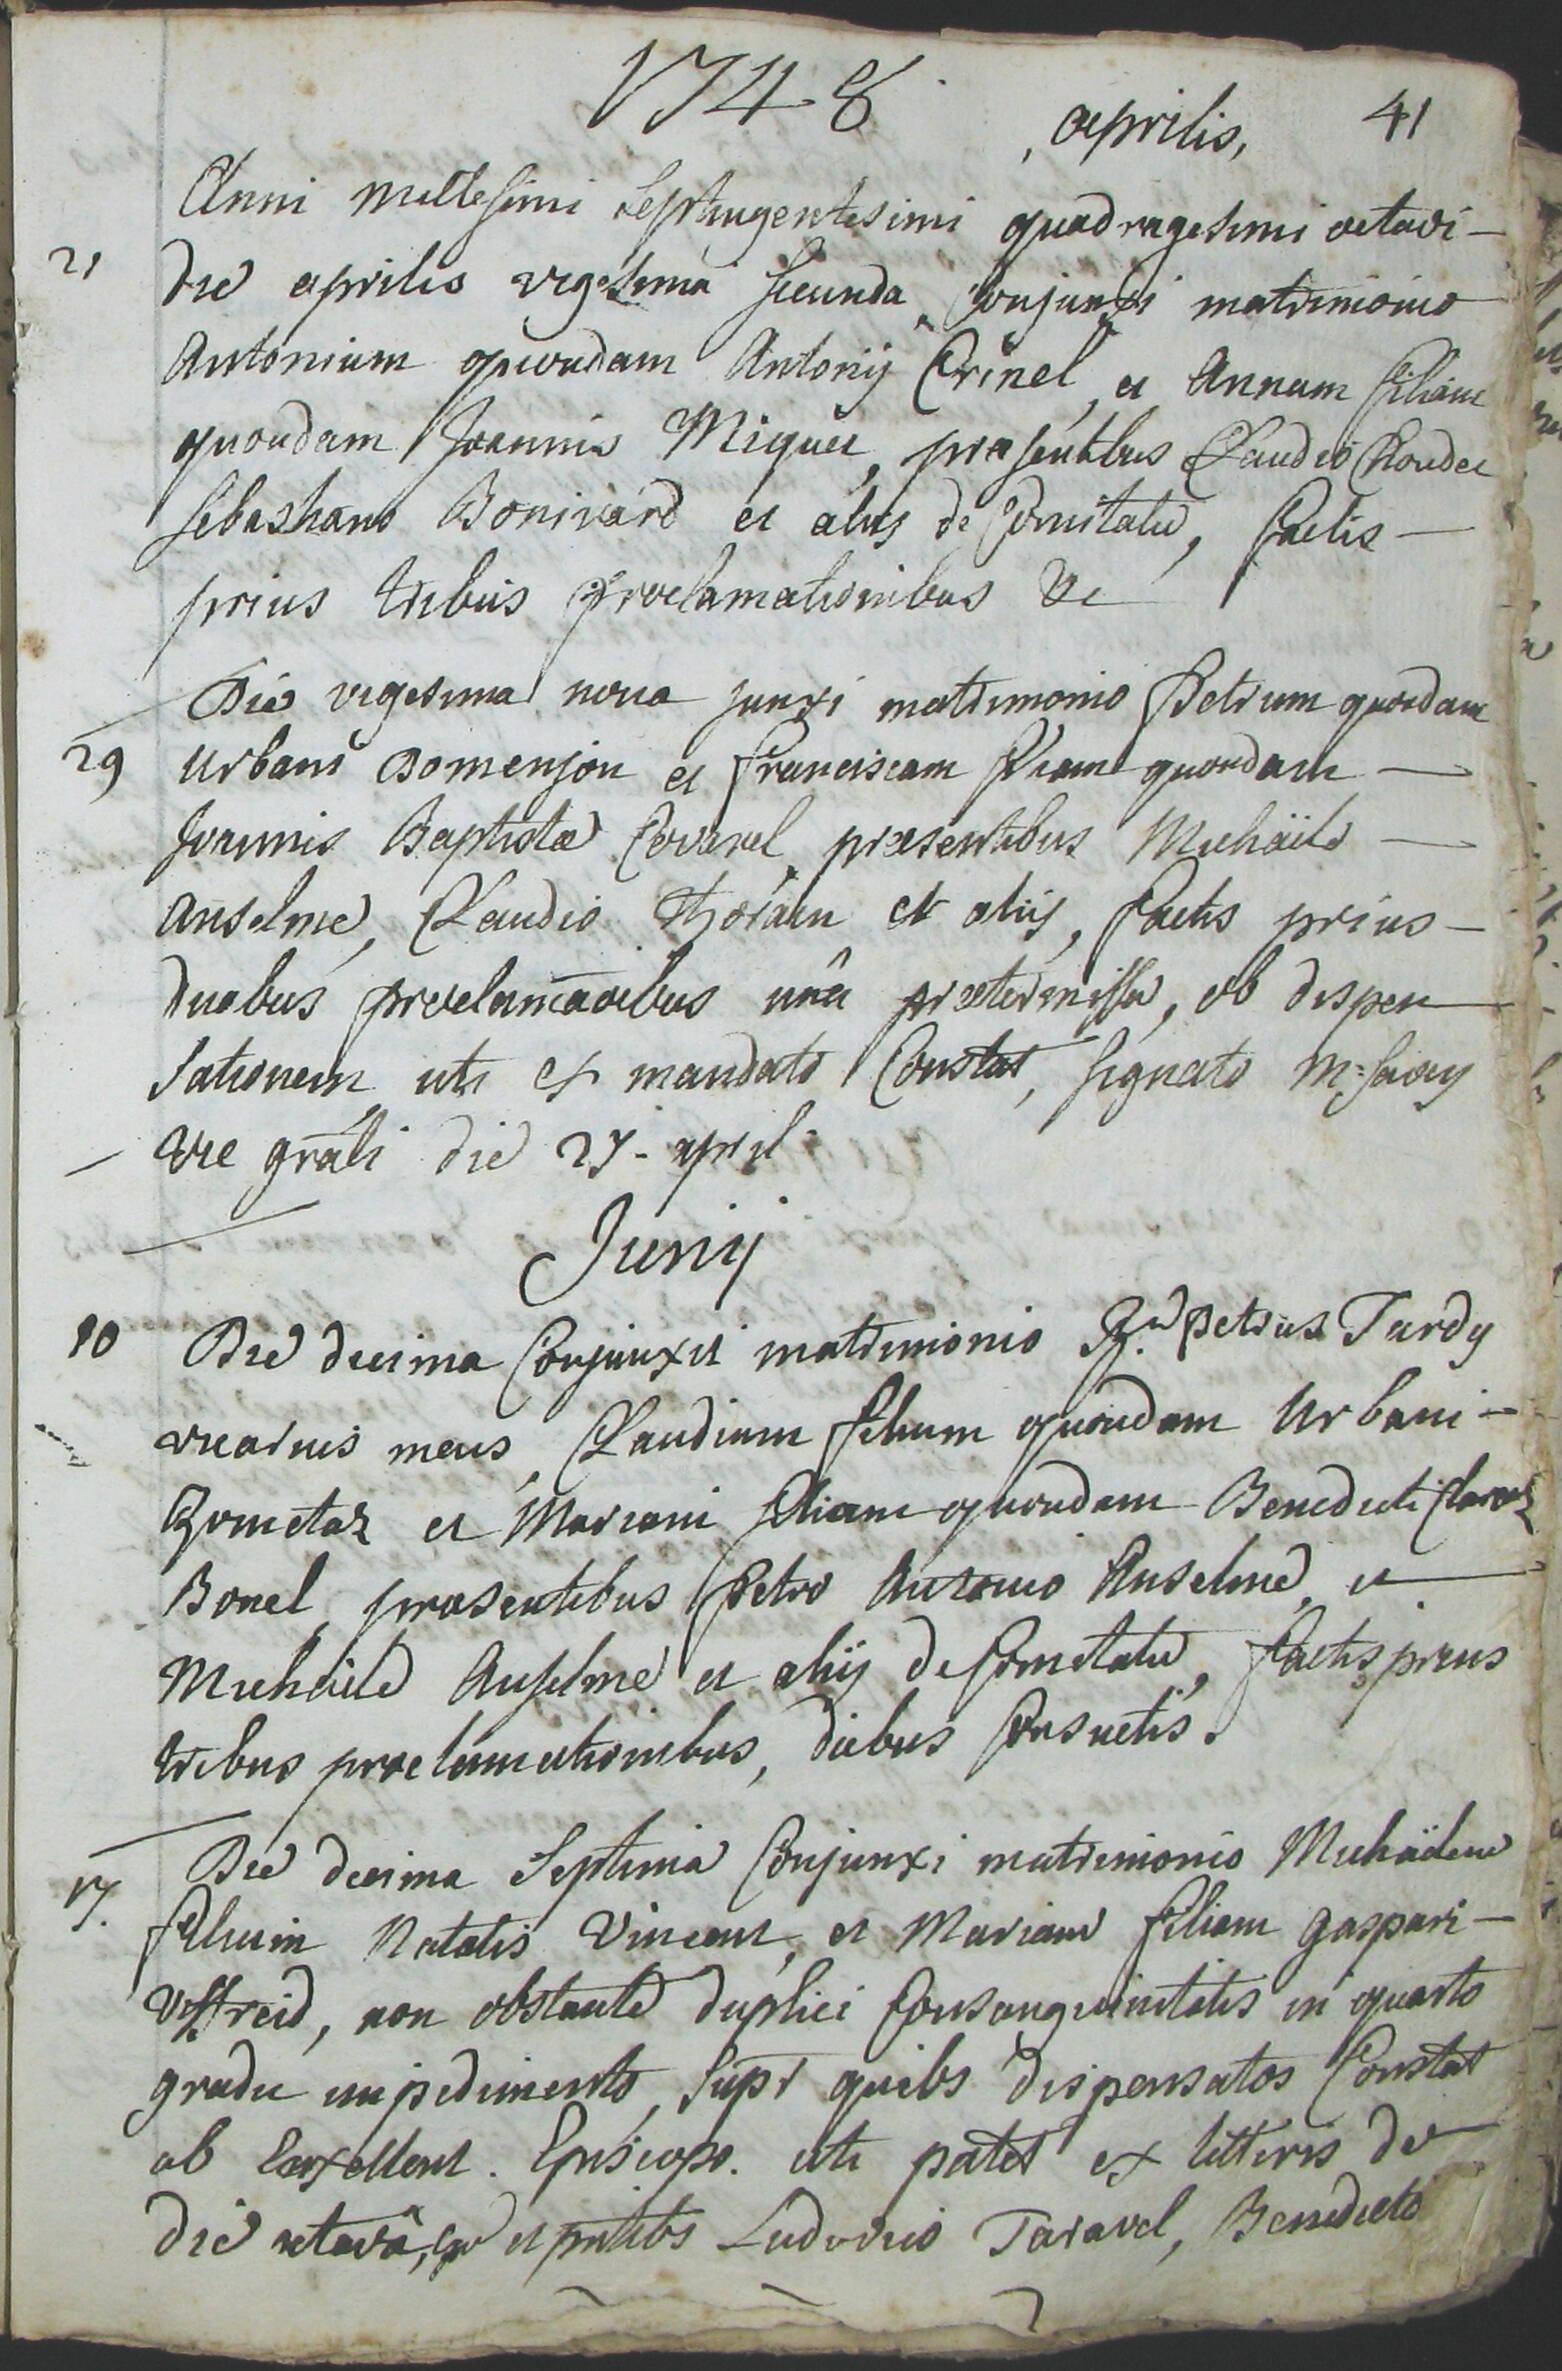 1748
aprilis,
41
Anni millesimi septuagentesimi quadragesimi octavi –
21
die aprilis vigesima secunda, conjunxi matrimonio
Antonium quondam Antonij Crinel, et Annam filiam
quondam Joannis Miquet, præsentibus Claudio
Sebastiano Bonivard et alijs de comitatu, factis –
prius tribus proclamationibus &c
Die vigesima nona junxi matrimonio Petrum quondam
29
Urbani Domenjon et Franciscam filiam quondam –
Joannis Baptistæ Covarel, præsentibus Michaële –
Anselme, Claudio et alijs, factis prius –
duabus proclamaōibus unâ prætermissa, ob dispen
sationem uti ex mandato constat, signato
vic grāli die 27. april.
Junij
10
Die decima conjunxit matrimonio Rd. Petrus Tardy
vicarius meus, Claudium filium quondam Urbani –
Gometaz et Mariam filiam quondam Benedicti
Bonel, præsentibus Petro Antonio Anselme, et
Michaële Anselme et alijs de comitatu, factis prius
tribus proclamationibus, diebus consuetis.
17.
Die decima septima conjunxi matrimonio Michäelem
filium Natalis Vincent, et Mariam filiam Gaspari –
Uffreid, non obstante duplici consanguinitatis in quarto
gradu impedimento, supr quibs dispensatos constat
ab Exellent. Episcopo. uti patet ex litteris de
die octavâ, et pntibs Ludovico Taravel, Benedicto